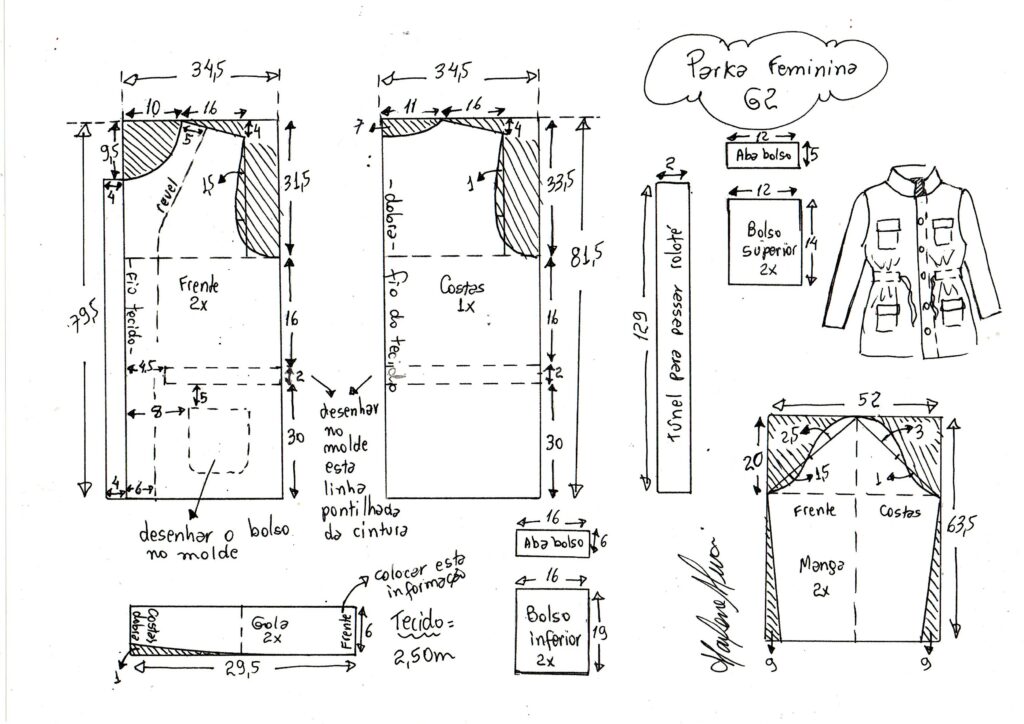 Parka Feminina
G2
34,5
10
16
4
9,5
5
4
revel
1,5
31,5
79,5
fio tecido
Frente
2x
16
4,5
2
5
8
30
4
6
desenhar o bolso
no molde
34,5
11
16
7
4
1
33,5
81,5
-dobra- fio do tecido
Costas
1x
16
2
30
desenhar
no
molde
esta
linha
pontilhada
da cintura
2
129
Túnel para passar roloté
12
Aba bolso
5
12
Bolso
superior
2x
14
52
2,5
3
20
1,5
1
Frente
Costas
63,5
Manga
2x
9
9
16
Aba bolso
6
16
Bolso
inferior
2x
19
colocar esta
informação
dobra
Costas
Gola
2x
Frente
6
1
29,5
Tecido=
2,50m